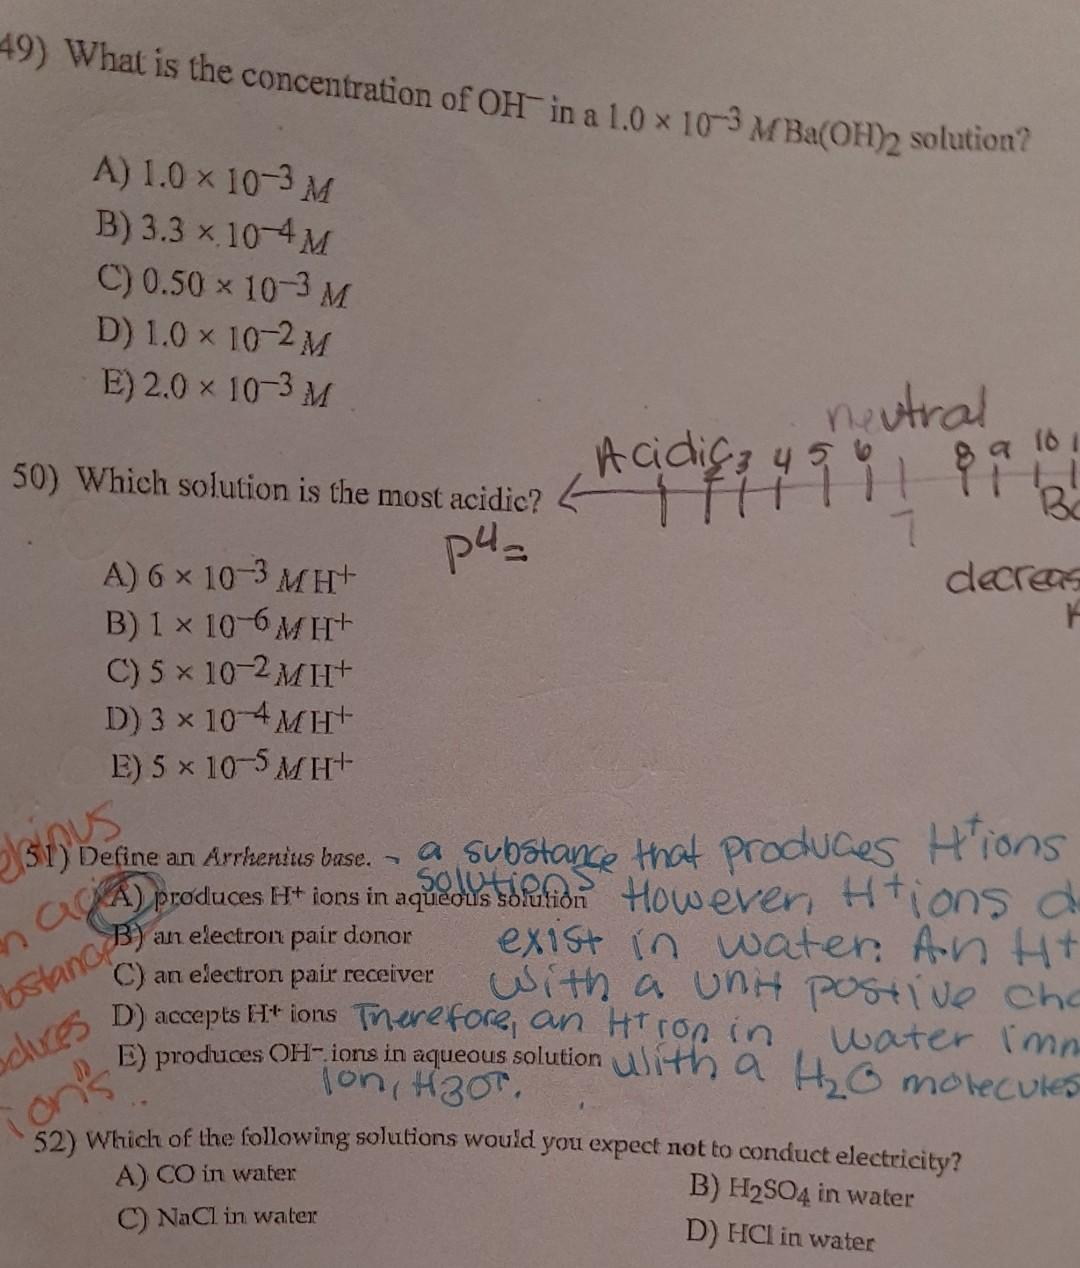 49) What is the concentration of OH⁻ in a 1.0 × 10⁻³ M Ba(OH)₂ solution?
A) 1.0 × 10⁻³ M
B) 3.3 × 10⁻⁴ M
C) 0.50 × 10⁻³ M
D) 1.0 × 10⁻² M
E) 2.0 × 10⁻³ M
neutral
Acidic 3 4 5 6 8 9 10
50) Which solution is the most acidic?
7
pH=
decreas
A) 6 × 10⁻³ M H⁺
B) 1 × 10⁻⁶ M H⁺
C) 5 × 10⁻² M H⁺
D) 3 × 10⁻⁴ M H⁺
E) 5 × 10⁻⁵ M H⁺
51) Define an Arrhenius base. - a substance that produces H⁺ ions
solutions
A) produces H⁺ ions in aqueous solution However, H⁺ ions d
B) an electron pair donor exist in water. An H+
C) an electron pair receiver with a unit postive cha
D) accepts H⁺ ions Therefore, an H⁺ ion in water imm
E) produces OH⁻ ions in aqueous solution with a H₂O molecules
ion, H3O⁺.
ions
52) Which of the following solutions would you expect not to conduct electricity?
A) CO in water
B) H₂SO₄ in water
C) NaCl in water
D) HCl in water